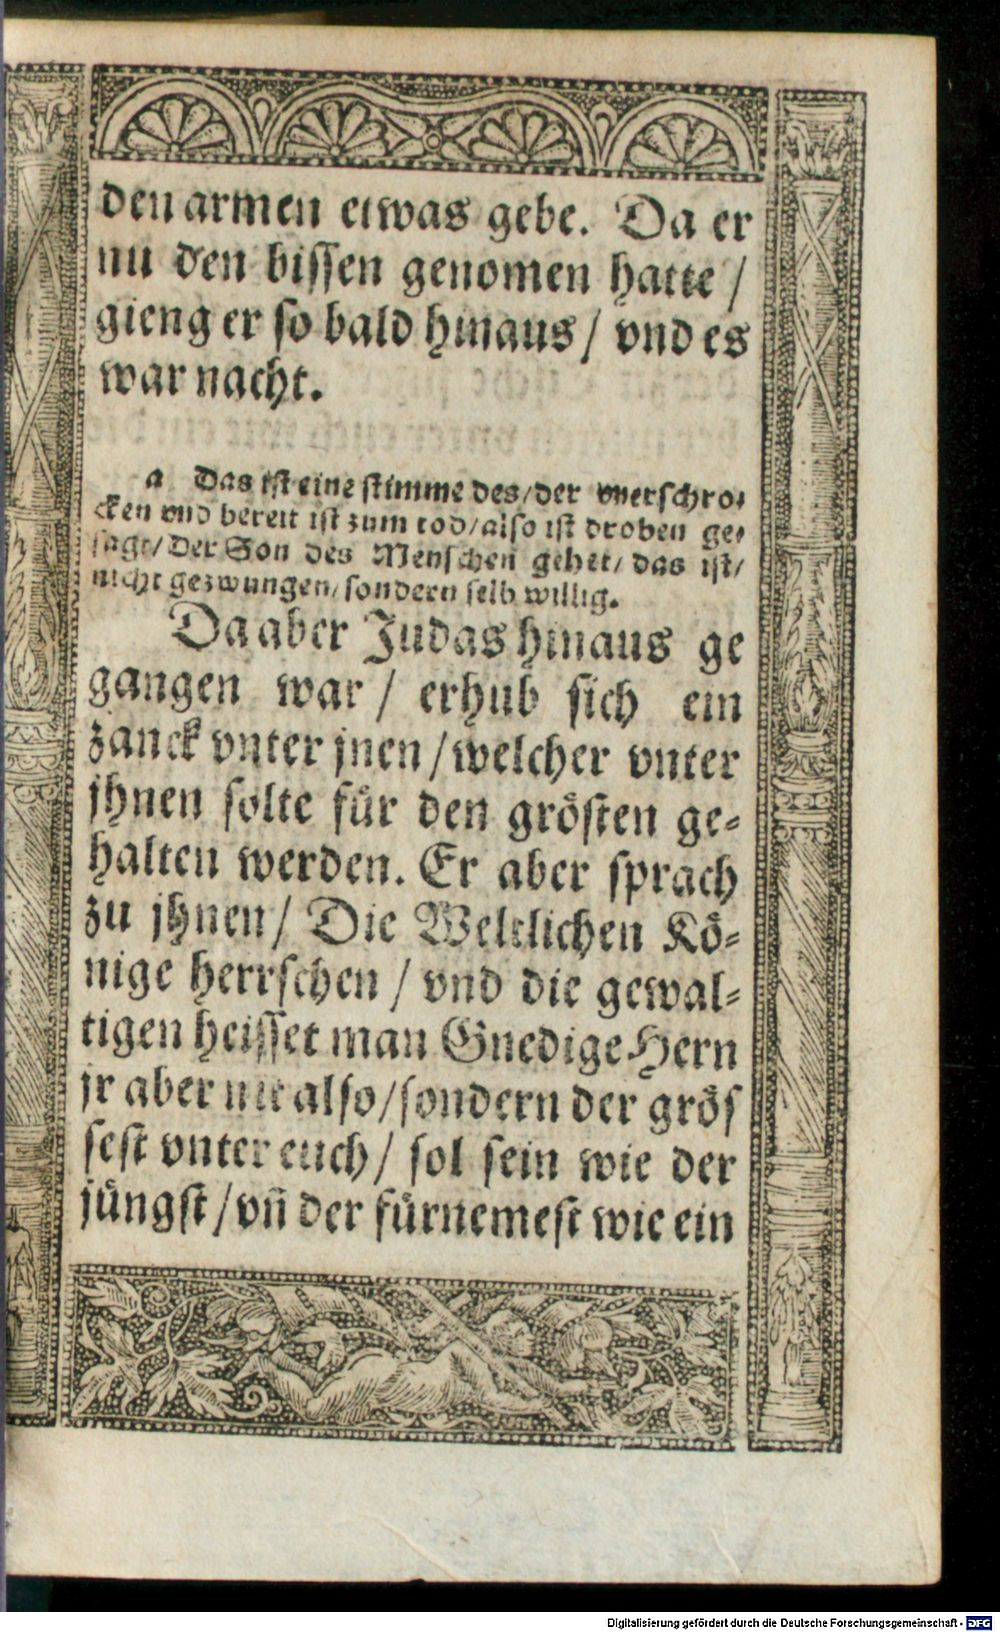 den armen etwas gebe. Da er
nu den bissen genomen hatte /
gieng er so bald hinaus / vnd es
war nacht.
a Das ist eine stimme des / der vnerschro⸗
cken vnd bereit ist zum tod / also ist droben ge⸗
sagt / Der Son des Menschen gehet / das ist /
nicht gezwungen / sondern selb willig.
Da aber Judas hinaus ge
gangen war / erhub sich ein
zanck vnter jnen / welcher vnter
jhnen solte für den grösten ge⸗
halten werden. Er aber sprach
zu jhnen / Die Weltlichen Kö⸗
nige herrschen / vnd die gewal⸗
tigen heisset man Gnedige Hern
jr aber nit also / sondern der grös
sest vnter euch / sol sein wie der
jüngst / vñ der fürnemest wie ein
Digitalisierung gefördert durch die Deutsche Forschungsgemeinschaft - DFG